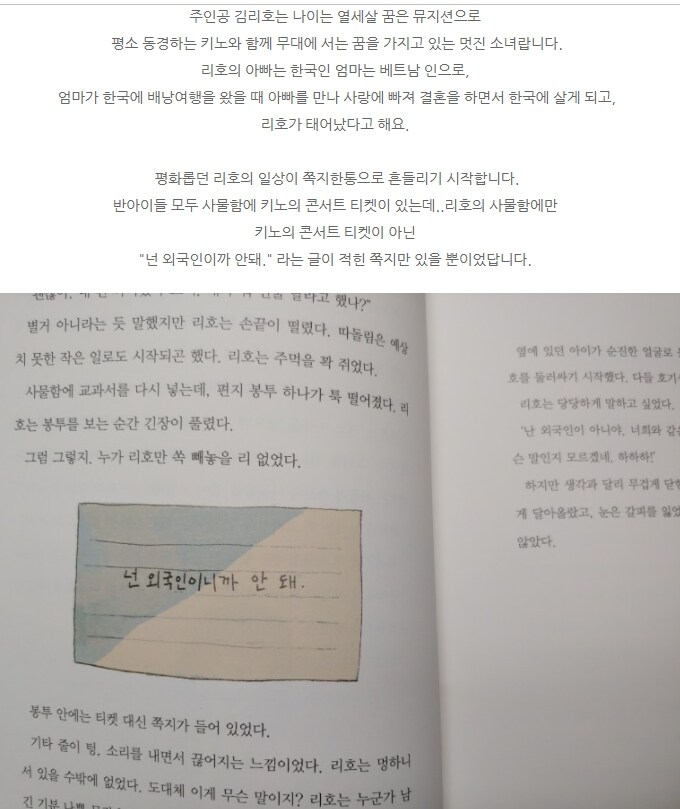 주인공 김리호는 나이는 열세살 꿈은 뮤지션으로
평소 동경하는 키노와 함께 무대에 서는 꿈을 가지고 있는 멋진 소녀랍니다.
리호의 아빠는 한국인 엄마는 베트남 인으로,
엄마가 한국에 배낭여행을 왔을 때 아빠를 만나 사랑에 빠져 결혼을 하면서 한국에 살게 되고,
리호가 태어났다고 해요.
평화롭던 리호의 일상이 쪽지한통으로 흔들리기 시작합니다.
반아이들 모두 사물함에 키노의 콘서트 티켓이 있는데..리호의 사물함에만
키노의 콘서트 티켓이 아닌
"넌 외국인이까 안돼." 라는 글이 적힌 쪽지만 있을 뿐이었답니다.
했나?"
별거 아니라는 듯 말했지만 리호는 손끝이 떨렸다. 따돌림은 예상
치 못한 작은 일로도 시작되곤 했다. 리호는 주먹을 꽉 쥐었다.
사물함에 교과서를 다시 넣는데, 편지 봉투 하나가 툭 떨어졌다. 리
호는 봉투를 보는 순간 긴장이 풀렸다.
그럼 그렇지. 누가 리호만 쏙 빼놓을 리 없었다.
넌 외국인이니까 안 돼.
봉투 안에는 티켓 대신 쪽지가 들어 있었다.
기타 줄이 텅, 소리를 내면서 끊어지는 느낌이었다. 리호는 멍하니
서 있을 수밖에 없었다. 도대체 이게 무슨 말이지? 리호는 누군가 남
긴 기분 나쁜
옆에 있던 아이가 순진한 얼굴로
호를 둘러싸기 시작했다. 다들
리호는 당당하게 말하고 싶었다.
'난 외국인이 아니야. 너희와
슨 말인지 모르겠네, 하하하!'
하지만 생각과 달리 무겁게
게 달아올랐고, 눈은 갈피를
않았다.